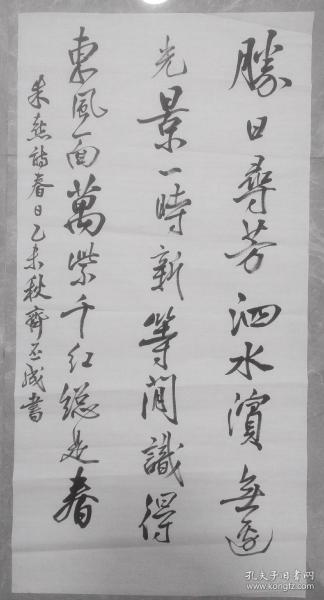 勝日尋芳泗水濱無邊
光景一時新等閒識得
東風面萬紫千红總是春
朱熹詩春日乙未秋齊丕成書
孔夫子旧书网
www.kongfz.com